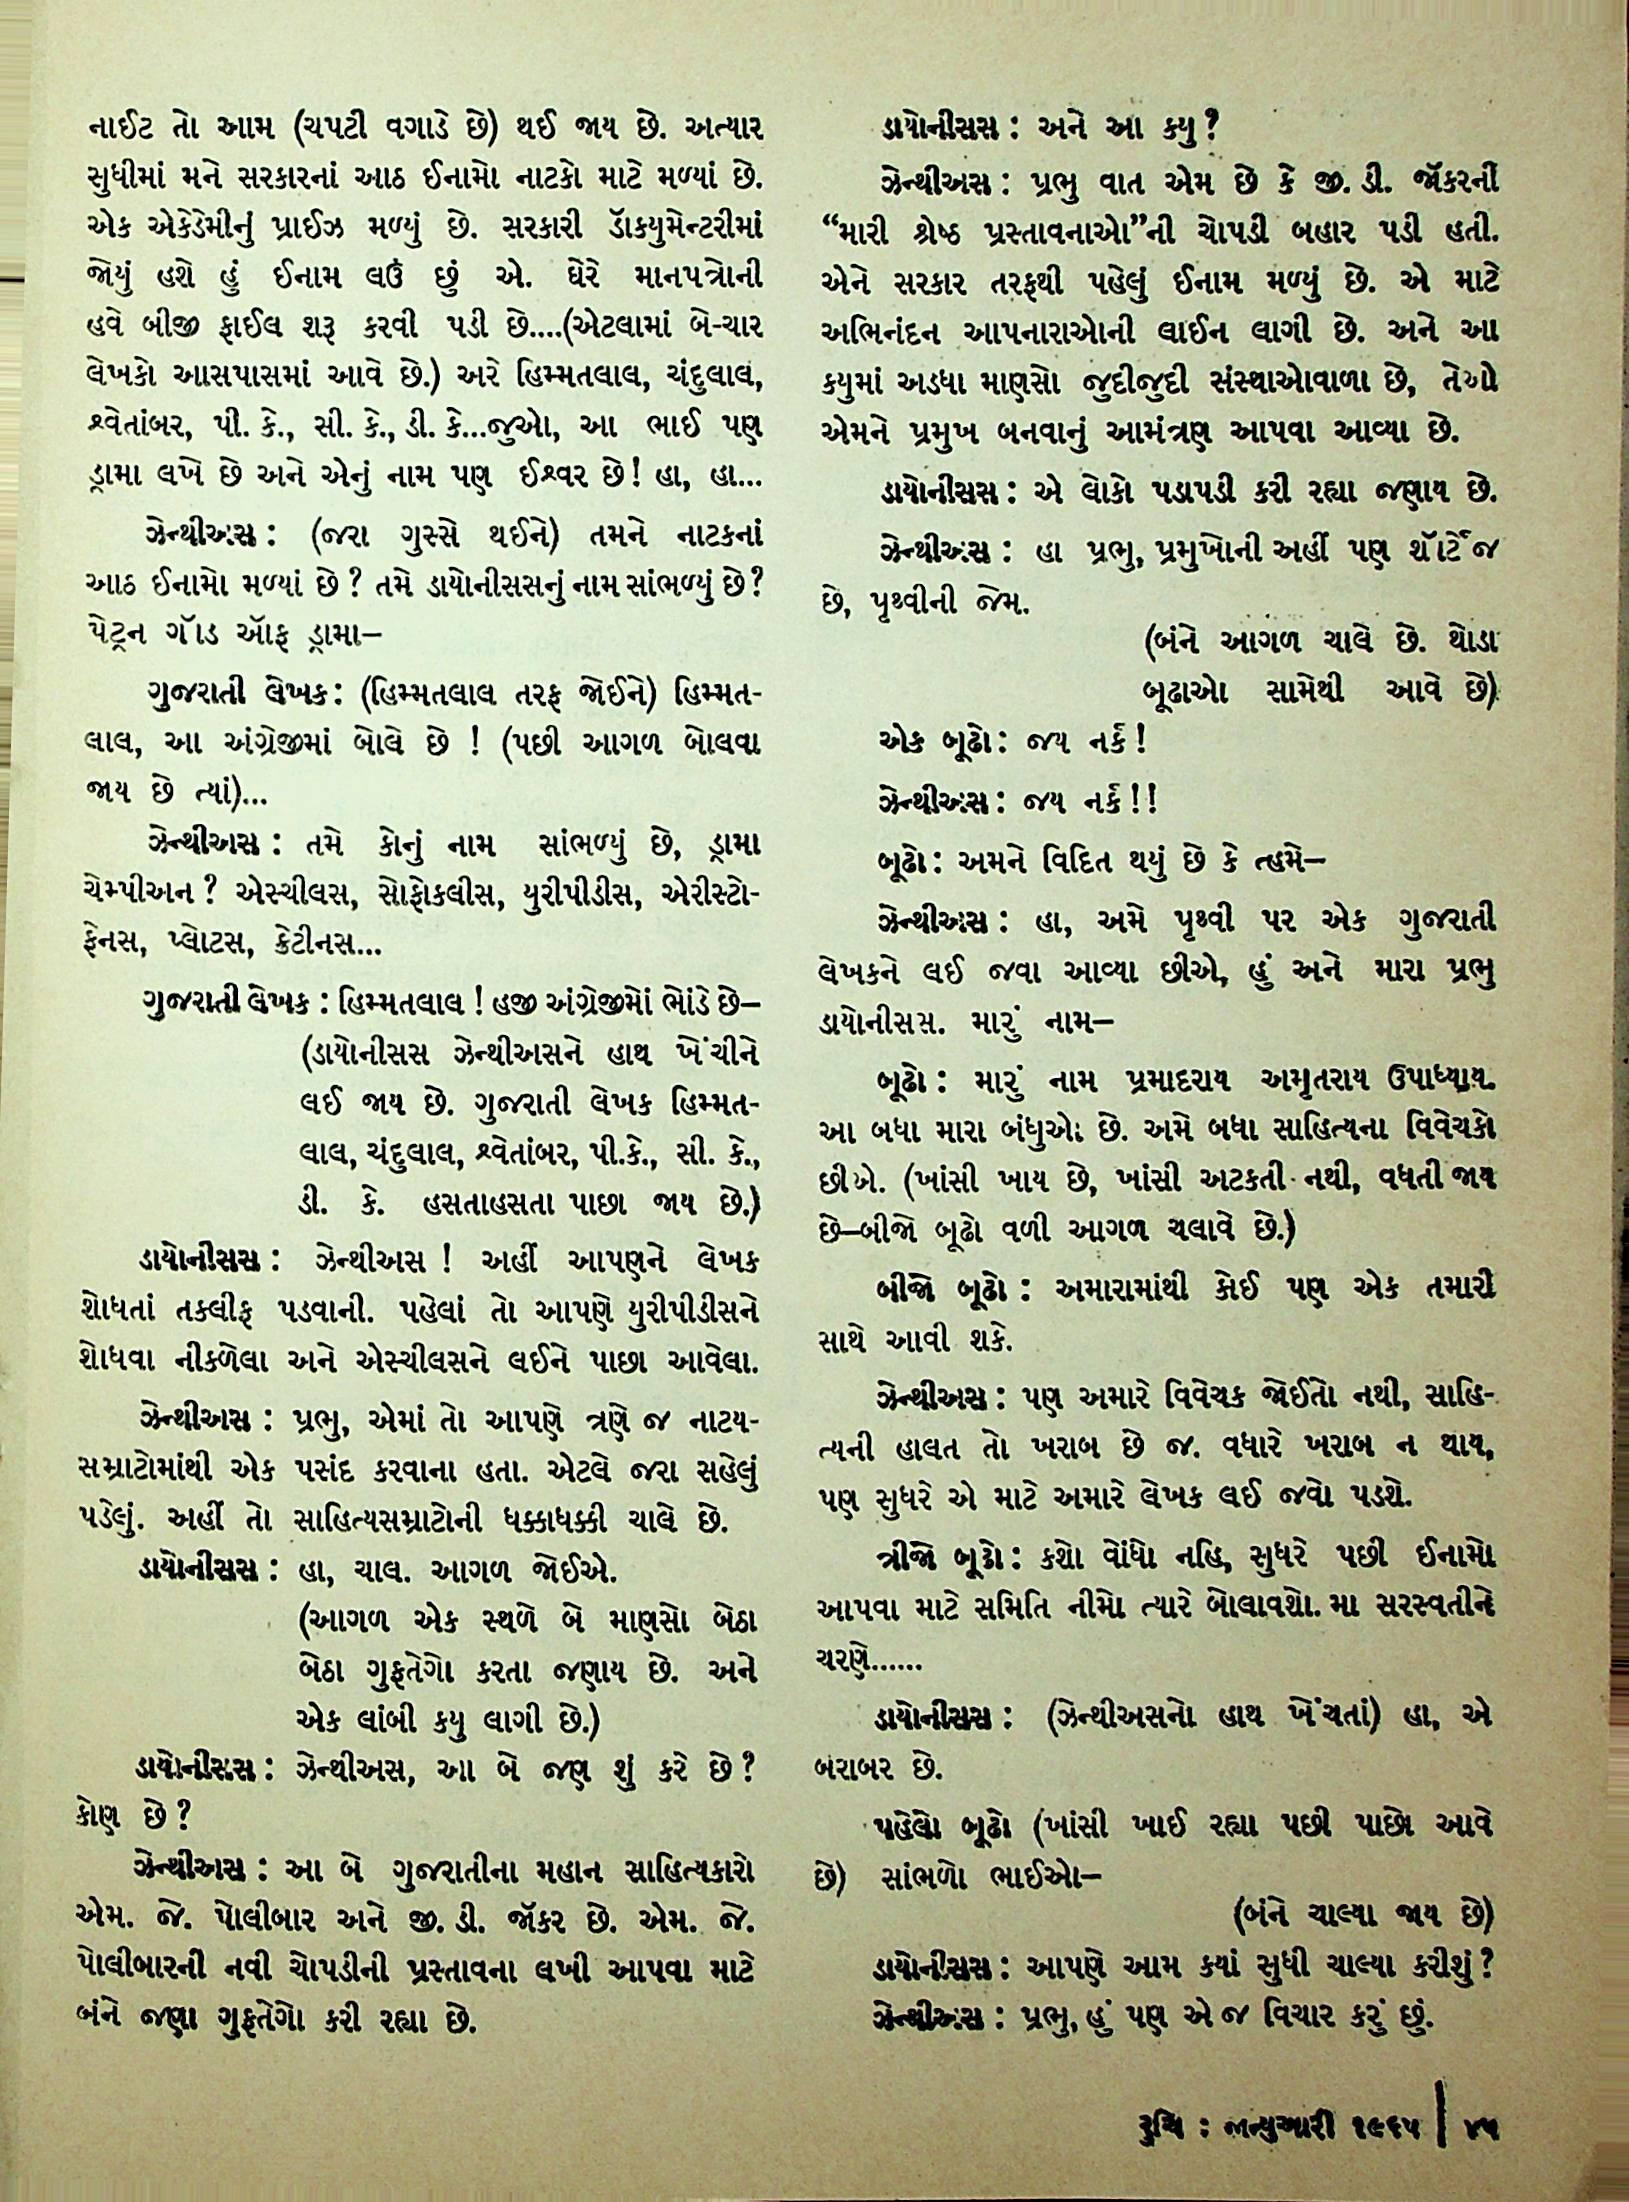 નાઈટ તો આમ (ચપટી વગાડે છે) થઈ જાય છે. અત્યાર
સુધીમાં મને સરકારનાં આઠ ઈનામો નાટકો માટે મળ્યાં છે.
એક એકેડેમીનું પ્રાઈઝ મળ્યું છે. સરકારી ડૉક્યુમેન્ટરીમાં
જોયું હશે હું ઈનામ લઉં છું એ. ઘેર માનપત્રોની
હવે બીજી ફાઈલ શરૂ કરવી પડી છે....(એટલામાં બે-ચાર
લેખકો આસપાસમાં આવે છે.) અરે હિમ્મતલાલ, ચંદુલાલ,
શ્વેતાંબર, પી. કે., સી. કે., ડી. કે...જુઓ, આ ભાઈ પણ
ડ્રામા લખે છે અને એનું નામ પણ ઈશ્વર છે! હા, હા...
ઝેન્થીઅસ : (જરા ગુસ્સે થઈને) તમને નાટકનાં
આઠ ઈનામો મળ્યાં છે? તમે ડાયોનીસસનું નામ સાંભળ્યું છે?
પેટ્રન ગૉડ ઑફ ડ્રામા—
ગુજરાતી લેખક: (હિમ્મતલાલ તરફ જોઈને) હિમ્મત-
લાલ, આ અંગ્રેજીમાં બોલે છે ! (પછી આગળ બોલવા
જાય છે ત્યાં)...
ઝેન્થીઅસ : તમે કોનું નામ સાંભળ્યું છે, ડ્રામા
ચેમ્પીઅન? એસ્ચીલસ, સોફોકલીસ, યુરીપીડીસ, એરીસ્ટો-
ફેનસ, પ્લોટસ, ક્રેટીનસ...
ગુજરાતી લેખક : હિમ્મતલાલ ! હજી અંગ્રેજીમાં ભાંડે છે—
(ડાયોનીસસ ઝેન્થીઅસને હાથ ખેંચીને
લઈ જાય છે. ગુજરાતી લેખક હિમ્મત-
લાલ, ચંદુલાલ, શ્વેતાંબર, પી.કે., સી. કે.,
ડી. કે. હસતાહસતા પાછા જાય છે.)
ડાયોનીસસ : ઝેન્થીઅસ ! અહીં આપણને લેખક
શોધતાં તકલીફ પડવાની. પહેલાં તો આપણે યુરીપીડીસને
શોધવા નીકળેલા અને એસ્ચીલસને લઈને પાછા આવેલા.
ઝેન્થીઅસ : પ્રભુ, એમાં તો આપણે ત્રણે જ નાટ્ય-
સમ્રાટોમાંથી એક પસંદ કરવાના હતા. એટલે જરા સહેલું
પડેલું. અહીં તો સાહિત્યસમ્રાટોની ધક્કાધક્કી ચાલે છે.
ડાયોનીસસ : હા, ચાલ. આગળ જોઈએ.
(આગળ એક સ્થળે બે માણસો બેઠા
બેઠા ગુફતેગો કરતા જણાય છે. અને
એક લાંબી ક્યુ લાગી છે.)
ડાયોનીસસ : ઝેન્થીઅસ, આ બે જણ શું કરે છે?
કોણ છે?
ઝેન્થીઅસ : આ બે ગુજરાતીના મહાન સાહિત્યકારો
એમ. જે. પોલીબાર અને જી. ડી. જૉકર છે. એમ. જે.
પોલીબારની નવી ચોપડીની પ્રસ્તાવના લખી આપવા માટે
બંને જણા ગુફતેગો કરી રહ્યા છે.
ડાયોનીસસ : અને આ ક્યુ?
ઝેન્થીઅસ : પ્રભુ વાત એમ છે કે જી. ડી. જૉકરની
“મારી શ્રેષ્ઠ પ્રસ્તાવનાઓ”ની ચોપડી બહાર પડી હતી.
એને સરકાર તરફથી પહેલું ઈનામ મળ્યું છે. એ માટે
અભિનંદન આપનારાઓની લાઈન લાગી છે. અને આ
ક્યુમાં અડધા માણસો જુદીજુદી સંસ્થાઓવાળા છે, તેઓ
એમને પ્રમુખ બનવાનું આમંત્રણ આપવા આવ્યા છે.
ડાયોનીસસ : એ લોકો પડાપડી કરી રહ્યા જણાય છે.
ઝેન્થીઅસ : હા પ્રભુ, પ્રમુખોની અહીં પણ શૉર્ટેજ
છે, પૃથ્વીની જેમ.
(બંને આગળ ચાલે છે. થોડા
બૂઢાઓ સામેથી આવે છે)
એક બૂઢો: જય નર્ક!
ઝેન્થીઅસ: જય નર્ક!!
બૂઢો: અમને વિદિત થયું છે કે ત્હમે—
ઝેન્થીઅસ : હા, અમે પૃથ્વી પર એક ગુજરાતી
લેખકને લઈ જવા આવ્યા છીએ, હું અને મારા પ્રભુ
ડાયોનીસસ. મારું નામ—
બૂઢો : મારું નામ પ્રમાદરાય અમૃતરાય ઉપાધ્યાય.
આ બધા મારા બંધુઓ છે. અમે બધા સાહિત્યના વિવેચકો
છીએ. (ખાંસી ખાય છે, ખાંસી અટકતી નથી, વધતી જાય
છે—બીજો બૂઢો વળી આગળ ચલાવે છે.)
બીજો બૂઢો : અમારામાંથી કોઈ પણ એક તમારી
સાથે આવી શકે.
ઝેન્થીઅસ : પણ અમારે વિવેચક જોઈતો નથી, સાહિ-
ત્યની હાલત તો ખરાબ છે જ. વધારે ખરાબ ન થાય,
પણ સુધરે એ માટે અમારે લેખક લઈ જવો પડશે.
ત્રીજો બૂઢો : કશો વાંધો નહિ, સુધરે પછી ઈનામો
આપવા માટે સમિતિ નીમો ત્યારે બોલાવશો. મા સરસ્વતીને
ચરણે......
ડાયોનીસસ : (ઝેન્થીઅસનો હાથ ખેંચતાં) હા, એ
બરાબર છે.
પહેલો બૂઢો (ખાંસી ખાઈ રહ્યા પછી પાછો આવે
છે) સાંભળો ભાઈઓ—
(બંને ચાલ્યા જાય છે)
ડાયોનીસસ : આપણે આમ કયાં સુધી ચાલ્યા કરીશું?
ઝેન્થીઅસ : પ્રભુ, હું પણ એ જ વિચાર કરું છું.
રુચિ : જાન્યુઆરી ૧૯૬૫ | ૪૫